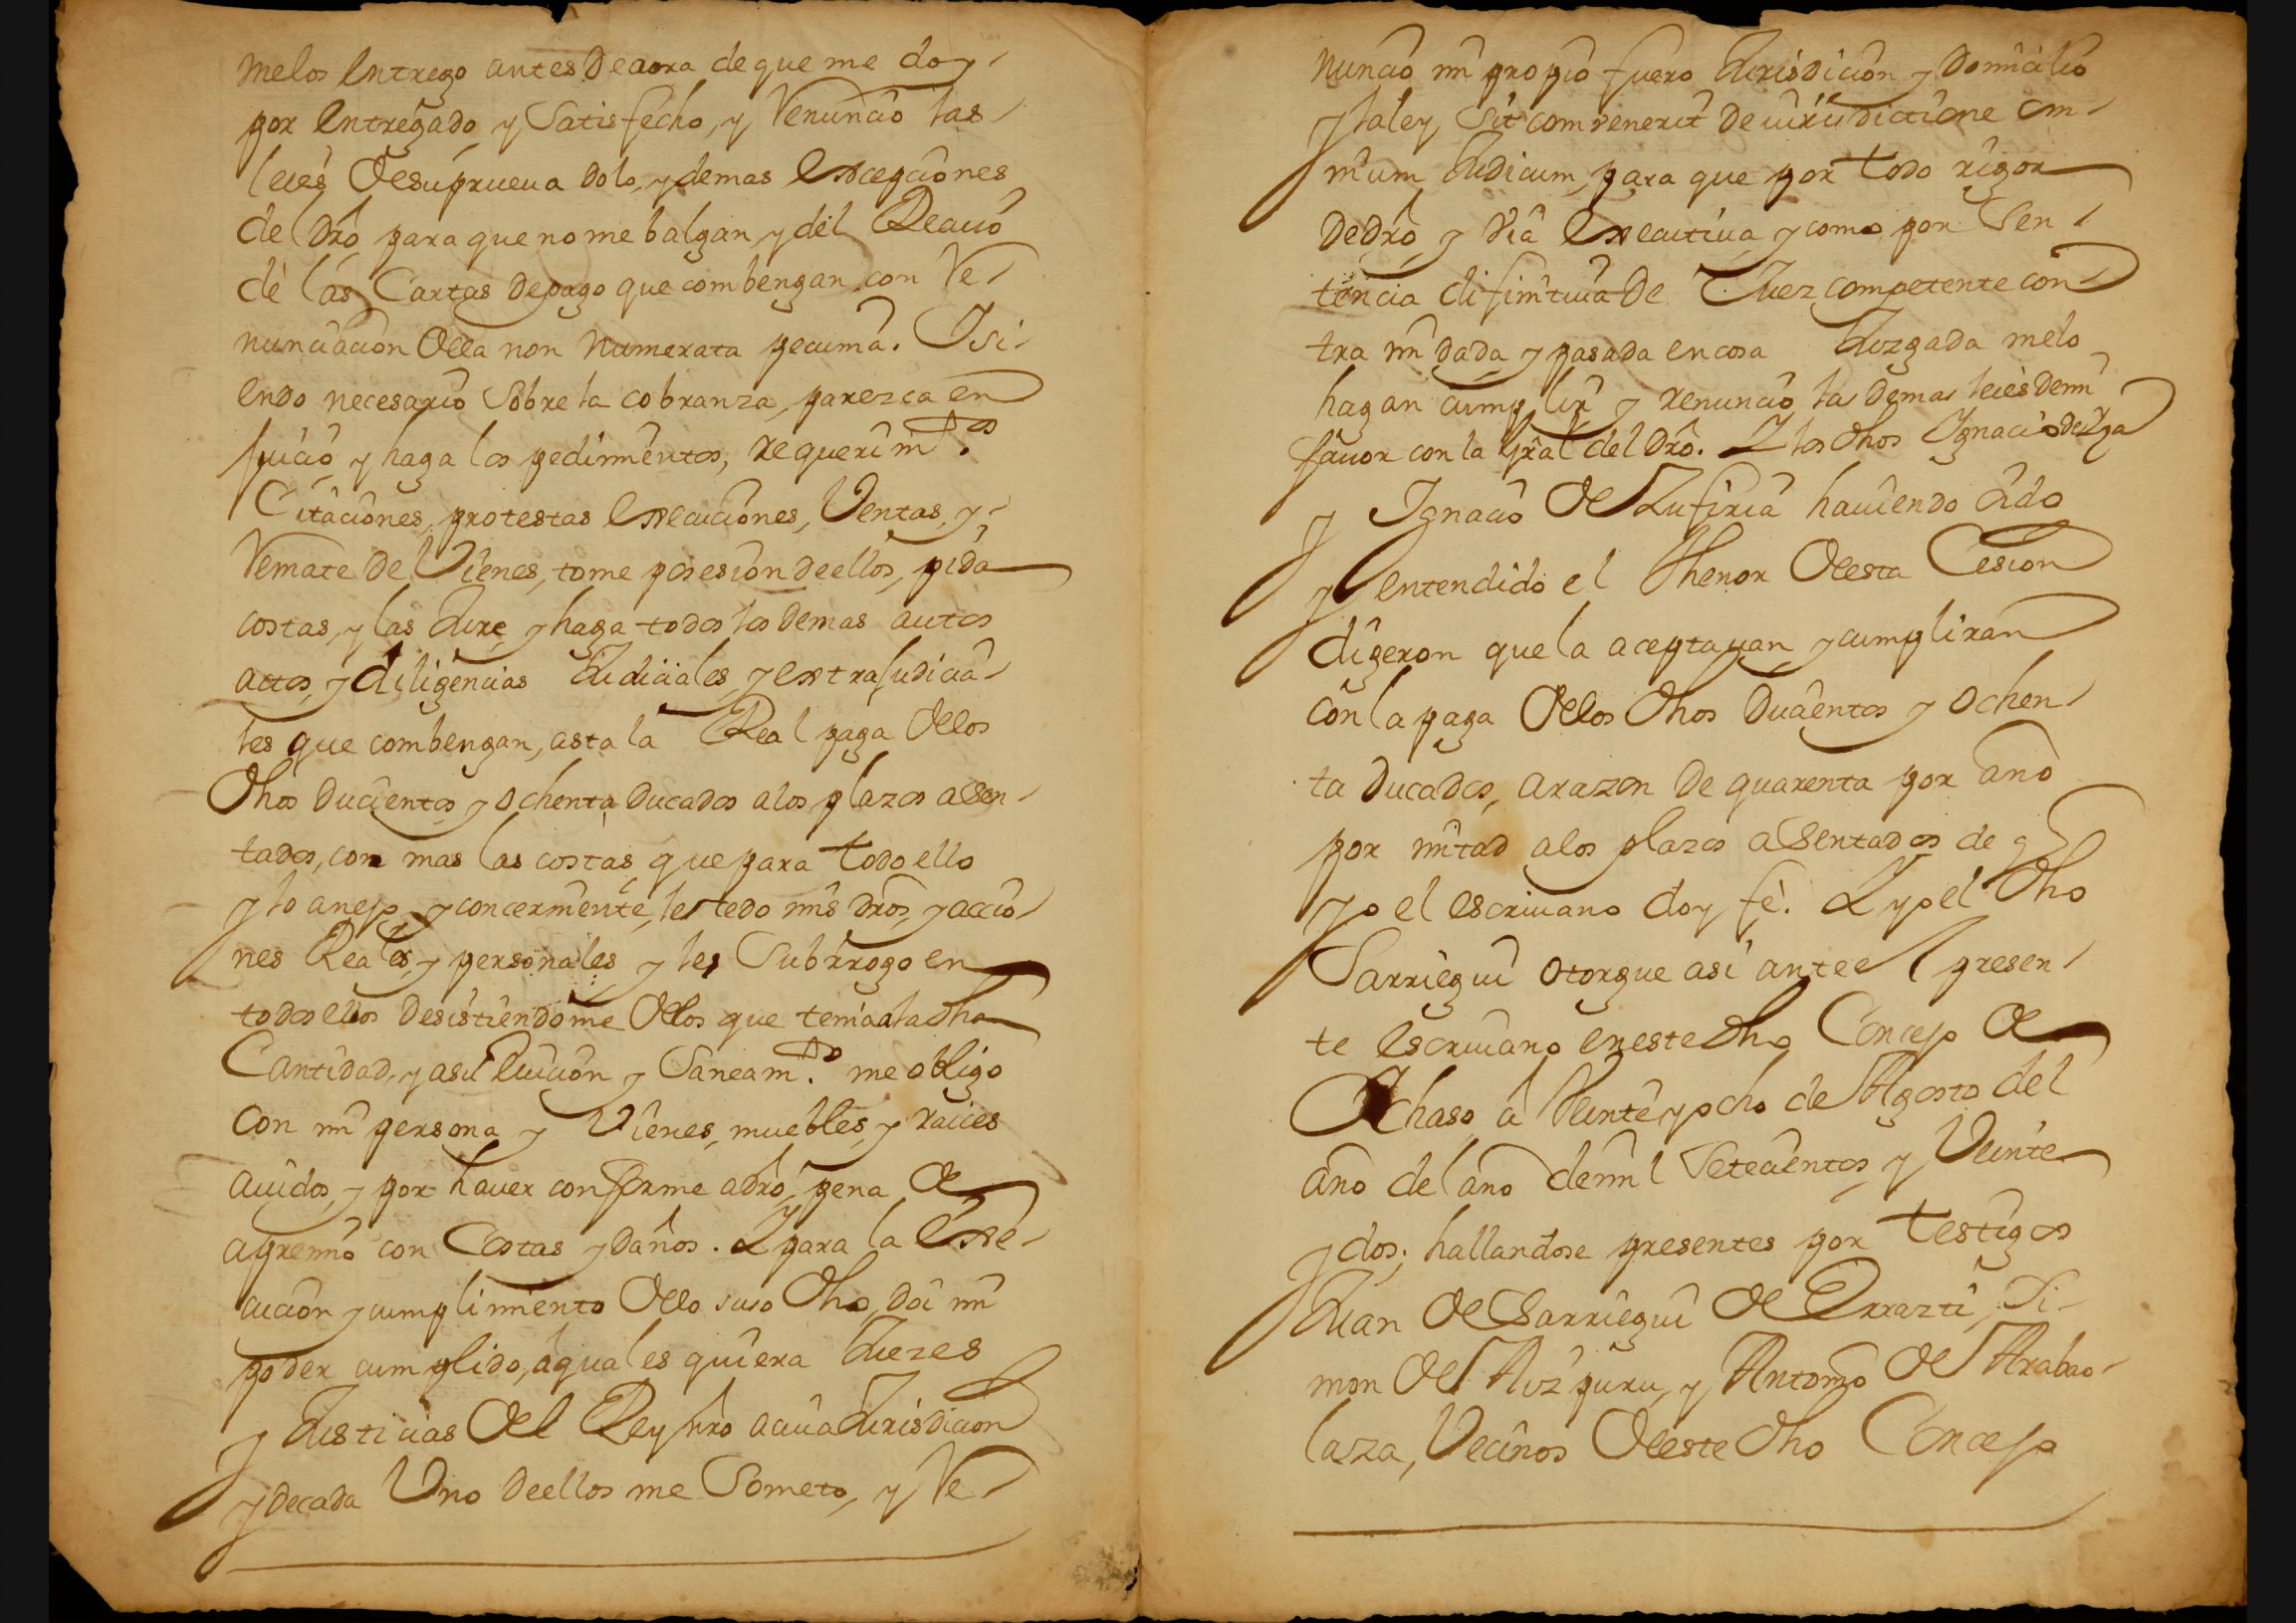 melos entrego antes de aora de que me doy
por entregado, y Satisfecho, y Renuncio las
leies de su prueua dolo, y demas excepciones
del dro para que no me balgan, y del Reciuo
de las Cartas de pago que combengan con Re
nunciacion de la non numerata pecunia. Y si
endo necesario Sobre la cobranza, parezca en
juicio y haga los pedimientos, requerimtos.
Citaciones, protestas execuciones, Ventas, y
Remate de Vienes, tome posesion de ellos, pida
costas, y las Jure, y haga todos los demas autos
actos, y diligencias Judiciales, y extrajudicia
les que combengan, asta la Real paga de los
dhos ducientos y ochenta ducados a los plazos asen
tados, con mas las costas, que para todo ello
y lo anejo, y concerniente, les cedo mis dros, y accio
nes Reales, y personales, y les Subrrogo en
todos ellos desistiendome de los que tenia a la dha
Cantidad, y a su Euicion y Saneamto. me obligo
con mi persona y Vienes, muebles, y raices
auidos, y por hauer conforme a dro, pena de
apremio con Costas y daños. Y para la Exe
cucion y cumplimiento de lo suso dho, doi mi
poder cumplido, a quales quiera Juezes
y Justicias del Rey nro a cuia Jurisdicion
y de cada Uno de ellos me Someto, y Re
nuncio mi propio fuero Jurisdicion y Domicilio
y la ley, Sit combenerit de iurisdictione om
nium Judicum, para que por todo rigor
de dro, y via executiua, y como por Sen
tencia difinitiua de Juez competente con
tra mi dada, y pasada en cosa Juzgada melo
hagan cumplir y renuncio las demas leies de mi
fauor con la gral del dro. Y los dhos Ignacio de
y Ignacio de Zufiria hauiendo oido
y entendido el thenor de esta Cesion
digeron que la aceptauan, y cumpliran
con la paga de los dhos ducientos y ochen
ta ducados, a razon de quarenta por año
por mitad a los plazos asentados de q
yo el escriuano doy fe. Y yo el dho
Sarriegui otorgue asi ante el presen
te escriuano en este dho Concejo de
Ochaso a Veinte y ocho de Agosto del
año del año de mil Setecientos, y Veinte
y dos; hallandose presentes por testigos
Juan de Sarriegui de Errazti, Si
mon de Aizpuru, y Antonio de Arabao
laza, Vecinos de este dho Concejo